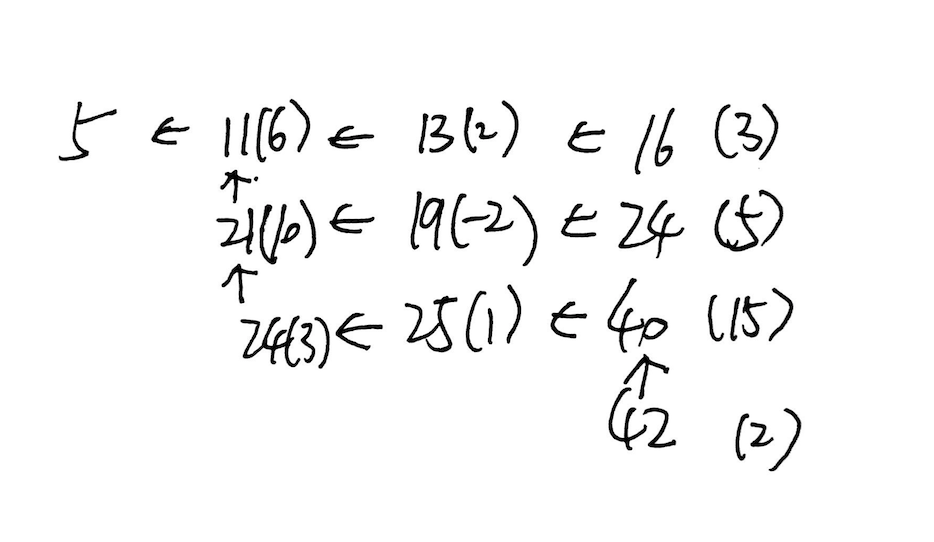 5 ← 11(6) ← 13(2) ← 16 (3)
↑
21(10) ← 19(-2) ← 24 (5)
↑
24(3) ← 25(1) ← 40 (15)
↑
42 (2)